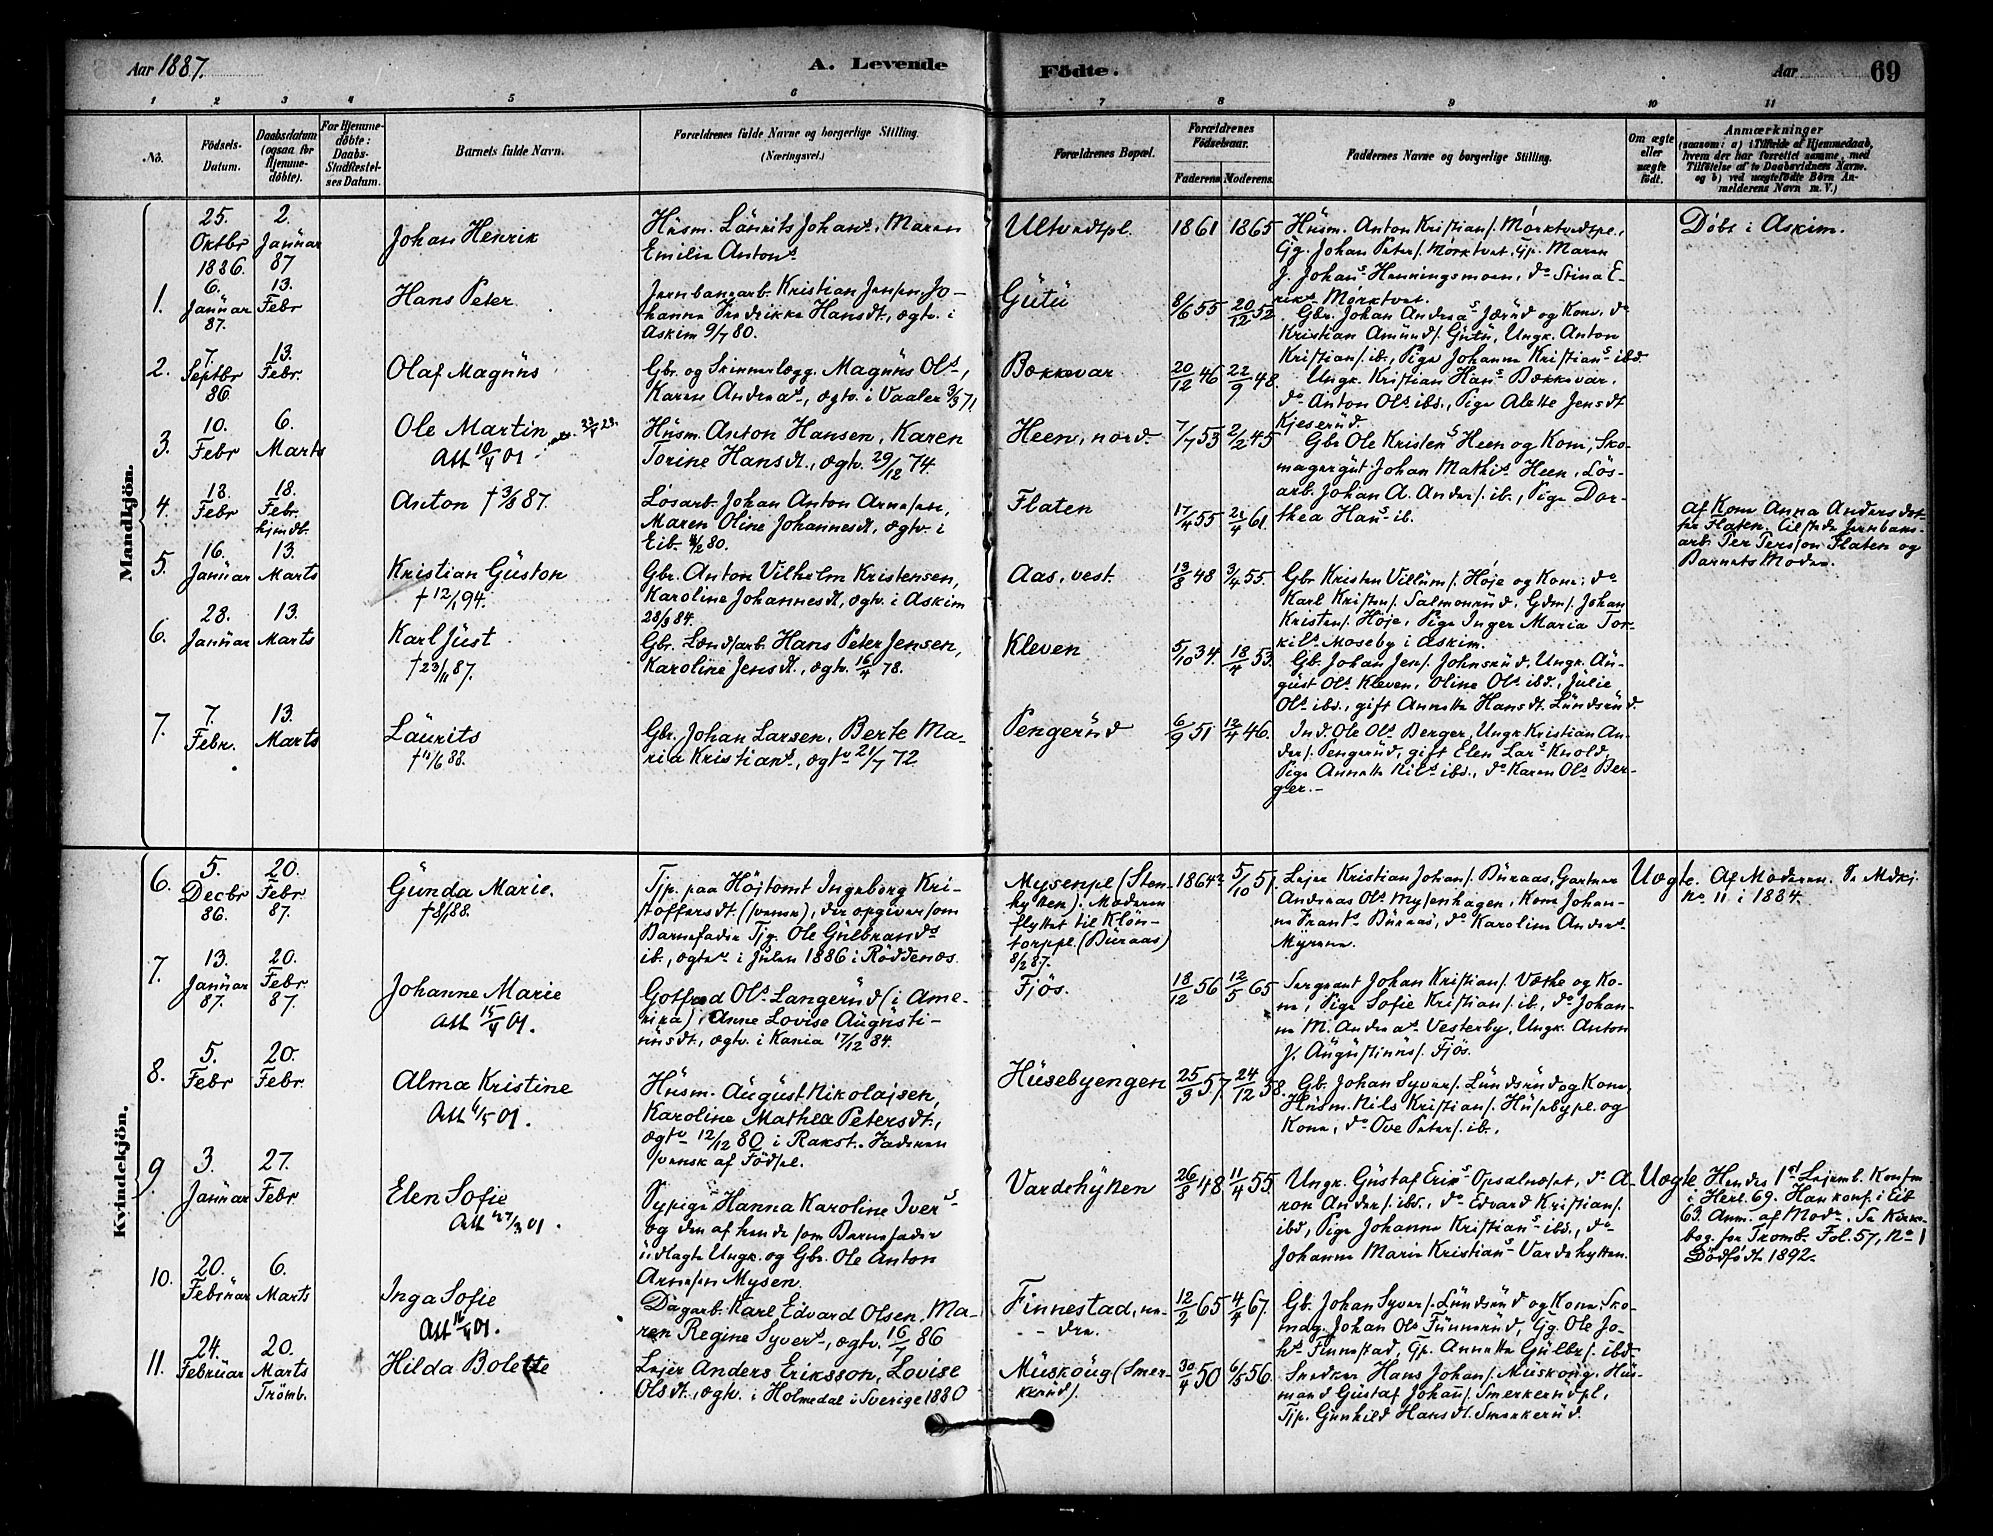 Aar 1887.
A. Levende Födte.
Aar
69
1 2 3 4 5 6 7 8 9 10 11
No.
Födsels-Datum.
Daabsdatum (ogsaa for Hjemme-döbte).
For Hjemme-döbte: Daabs-Stadfæstel-ses Datum.
Barnets fulde Navn.
Forældrenes fulde Navne og borgerlige Stilling. (Næringsvei.)
Forældrenes Bopæl.
Forældrenes Födselsaar.
Faderens. Moderens.
Faddernes Navne og borgerlige Stilling.
Om ægte eller uægte födt.
Anmærkninger
(saasom: a) i Tilfælde af Hjemmedaab, hvem der har forrettet samme, med Tilföielse af to Daabsvidners Navne, og b) ved uægtefödte Börn An-melderens Navn m. V.)
Mandkjön.
25. Oktbr 1886.
2. Januar 87
Johan Henrik
Husm. Laurits Johans., Maren
Emilie Antons.
Ultvedtpl.
1861 1865
Husm. Anton Kristians. Mörktvedtpl.,
Gg. Johan Peters. Mörktvet, Gp. Maren
J. Johans. Henningsmoen, do Stina E-
riks. Mörktvet.
Döbt i Askim.
1.
6. Januar 87.
13. Febr
Hans Peter
Jernbanearb. Kristian Jensen, Jo-
hanne Fredrikke Hansdt., ægtv. i
Askim 9/7 80.
Gutu
8/6 55 20/12 52
Gbr. Johan Andreas. Jærud og Kone, do
Kristian Amunds. Gutu, Ungk. Anton
Kristians. ib., Pige Johanne Kristians. ibd.
2.
7. Septbr 86.
13. Febr.
Olaf Magnus
Gbr. og Skinnerlægg. Magnus Ols.,
Karen Andreas., ægtv. i Vaaler 3/3 71
Bækkevar
20/12 46 22/9 48.
Ungk. Kristian Hans. Bækkevar,
do Anton Ols. ibd., Pige Alette Jensdt
Kjeserud.
3.
10. Febr
6. Marts
Ole Martin
Att 10/4 01.
Husm. Anton Hansen, Karen
Torine Hansdt., ægtv. 29/12 74.
Heen, nord
7/7 53 2/2 45
Gbr Ole Kristens. Heen og Kone, Sko-
magergut Johan Mathis. Heen, Lös-
arb. Johan A. Anders. ib., Pige Dor-
thea Hans. ib.
4.
13. Febr
18. Febr. hjmdb.
Anton † 3/3 87.
Lösarb. Johan Anton Arnesen,
Maren Oline Johannesdt, ægtv. i
Eib. 4/2 80.
Flaten
17/4 55 21/4 61.
af Kone Anna Andersdat-
ter Flaten. Tilstede Jernbane-
arb. Per Persson Flaten og
Barnets Moder.
5.
16. Januar
13. Marts
Kristian Guston
† 12/1 94.
Gbr. Anton Vilhelm Kristensen,
Karoline Johannesdt, ægtv. i Askim
28/3 84.
Aas, vest.
13/8 48 3/4 55.
Gbr Kristen Villums. Höje og Kone, do
Karl Kristens. Salmonrud, Gdms. Johan
Kristens. Höje, Pige Inger Maria Tor-
kils. Moseby i Askim.
6.
28. Januar
13. Marts
Karl Just
† 23/11 87.
Gbr. Lændsarb. Hans Peter Jensen,
Karoline Jensdt., ægtv. 16/4 78.
Kleven
5/10 34. 18/4 53.
Gb. Johan Jens. Johnsrud, Ungk. Au-
gust Ols. Kleven, Oline Ols. ibd., Julie
Ols. ibd., gift Annette Hansdt. Lundsrud.
7.
7. Febr.
13. Marts
Laurits
† 11/6 88.
Gbr. Johan Larsen, Berte Ma-
ria Kristians., ægtv. 21/7 72
Pengerud
6/9 51 12/4 46.
Ind. Ole Ols. Berger, Ungk Kristian An-
ders. Pengerud, gift Elen Lars. Knold,
Pige Annette Nils. ibd., do Karen Ols. Ber-
ger.-
Kvindekjön.
6.
5. Decbr 86.
20. Febr 87.
Gunda Marie.
† 8/1 88.
Tjp. paa Höjtomt Ingeborg Kri-
stoffersdt. (svensk), der opgiver som
Barnefader Tjg. Ole Gulbrands.
ib., ægtev. i Julen 1886 i Röddenæs.
Mysenpl (Sten-
hytten). Moderen
flyttet til Klön-
torppl. (Buraas)
8/2 87.
1864? 5/10 51.
Lejer Kristian Johans. Buraas, Gartner
Andreas Ols. Mysenhagen, Kone Johan-
ne Frants. Buraas, do Karoline Anders.
Myrene.
Uægte.
Af Moderen. Se Mdkj.
No 11 i 1884.
7.
13. Januar 87.
20. Febr 87.
Johanne Marie
Att 15/4 01.
Gotfred Ols. Langerud (i Ame-
rika), Anne Lovise Augusti-
nusdt., ægtv. i Kania 17/12 84.
Fjös.
18/12 56 12/5 65
Sergeant Johan Kristians. Væthe og Ko-
ne, Pige Sofie Kristians. ib., do Johan-
ne M. Andreas. Vesterby, Ungk. Anton
J. Augustinus. Fjös.
8.
5. Febr
20. Febr.
Alma Kristine
Att 6/5 01.
Husm. August Nikolajsen,
Karoline Mathea Petersdt.,
ægtv. 12/12 80 i Rakst. Faderen
svensk af Födsel.
Husebyengen
25/3 57 24/12 58.
Gb. Johan Syvers. Lundsrud og Kone,
Husm. Nils Kristians. Husebypl. og
Kone, do Ove Peters. ib.
9
3. Januar
27. Febr
Elen Sofie
Att 27/3 01.
Sypige Hanna Karoline Ivers.
og den af hende som Barnefader
udlagte Ungk. og Gbr. Ole Anton
Arnesen Mysen.
Vardehytten
26/8 48 11/4 55
Ungk. Gustaf Eriks. Opsalnæset, do A-
ron Anders. ibd., do Edvard Kristians.
ibd, Pige Johanne Kristians. ibd., do
Johanne Marie Kristians. Vardehytten.
Uægte
Hendes 1ste Lejermb. Konfm
i Herl. 69. Han konf. i Eib
63. Anm. af Modr. Se Kirke-
bog for Tromb. Fol. 57, No 1
Dödfödte 1892.
10.
20. Februar
6. Marts
Inga Sofie
Att 16/4 01.
Dagarb. Karl Edvard Olsen, Ma-
ren Regine Syvers., ægtv. 16/7 86
Finnestad, ne-
dre.
12/2 65 4/4 67.
Gb. Johan Syvers. Lundsrud og Kone, Sko-
mag. Johan Ols. Funnerud, Gg. Ole Jo-
hs. Finnestad, Gp. Annette Gulbrs. ibd.
11.
24. Februar
20. Marts Trömb.
Hilda Bolette
Lejer Anders Eriksson, Lovise
Olsdt., ægtv. i Holmedal i Sverige 1880
Muskoug (Smer-
kerud).
30/4 50 6/5 56.
Snedker Hans Johans. Muskoug, Hus-
mand Gustaf Johans. Smerkerudpl.,
Tjp. Gunhild Hansdt. Smerkerud.